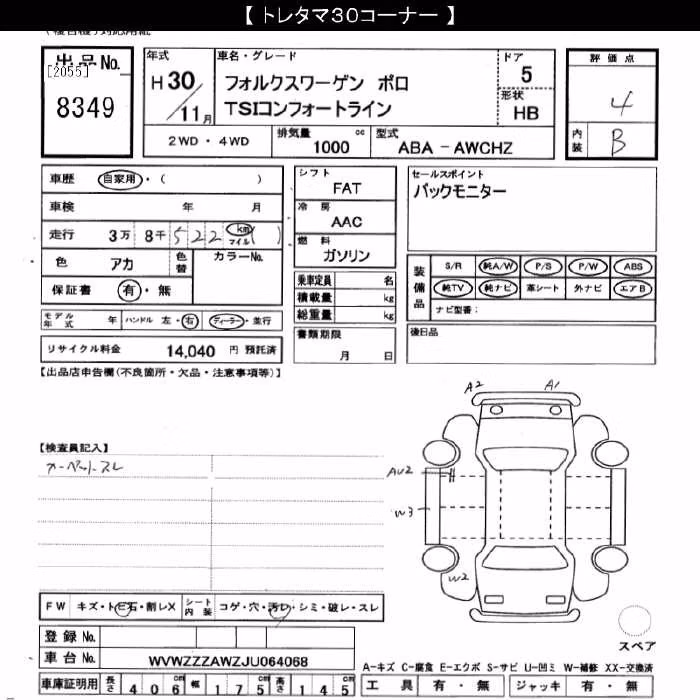 【 トレタマ30コーナー 】
出品No.
[2055]
8349
年式
H 30 / 11 月
車名・グレード
フォルクスワーゲン ポロ
TSIコンフォートライン
ドア
5
形状
HB
評価点
4
内装
B
2WD ・ 4WD
排気量
1000 cc
型式
ABA - AWCHZ
車歴 自家用・( )
車検 年 月
走行 3万 8千 522 km マイル ( )
色 アカ
色替
カラーNo.
保証書 有・無
モデル年式 年
ハンドル 左・右
ディーラー・並行
リサイクル料金 14,040 円 預託済
シフト
FAT
冷房
AAC
燃料
ガソリン
乗車定員 名
積載量 kg
総重量 kg
書類期限
月 日
セールスポイント
バックモニター
装備品
S/R 純A/W P/S P/W ABS
純TV 純ナビ 革シート 外ナビ エアB
ナビ型番:
後日品
【出品店申告欄(不良箇所・欠品・注意事項等)】
【検査員記入】
カーペットスレ
A2
A1
AU2
W3
W2
スペア
FW キズ・トビ石・割レX
シート内装 コゲ・穴・汚レ・シミ・破レ・スレ
登録 No.
車台 No. WVWZZZAWZJU064068
車庫証明用 長さ 406 cm 幅 175 cm 高さ 145 cm
A-キズ C-腐食 E-エクボ S-サビ U-凹ミ W-補修 XX-交換済
工具 有・無 ジャッキ 有・無